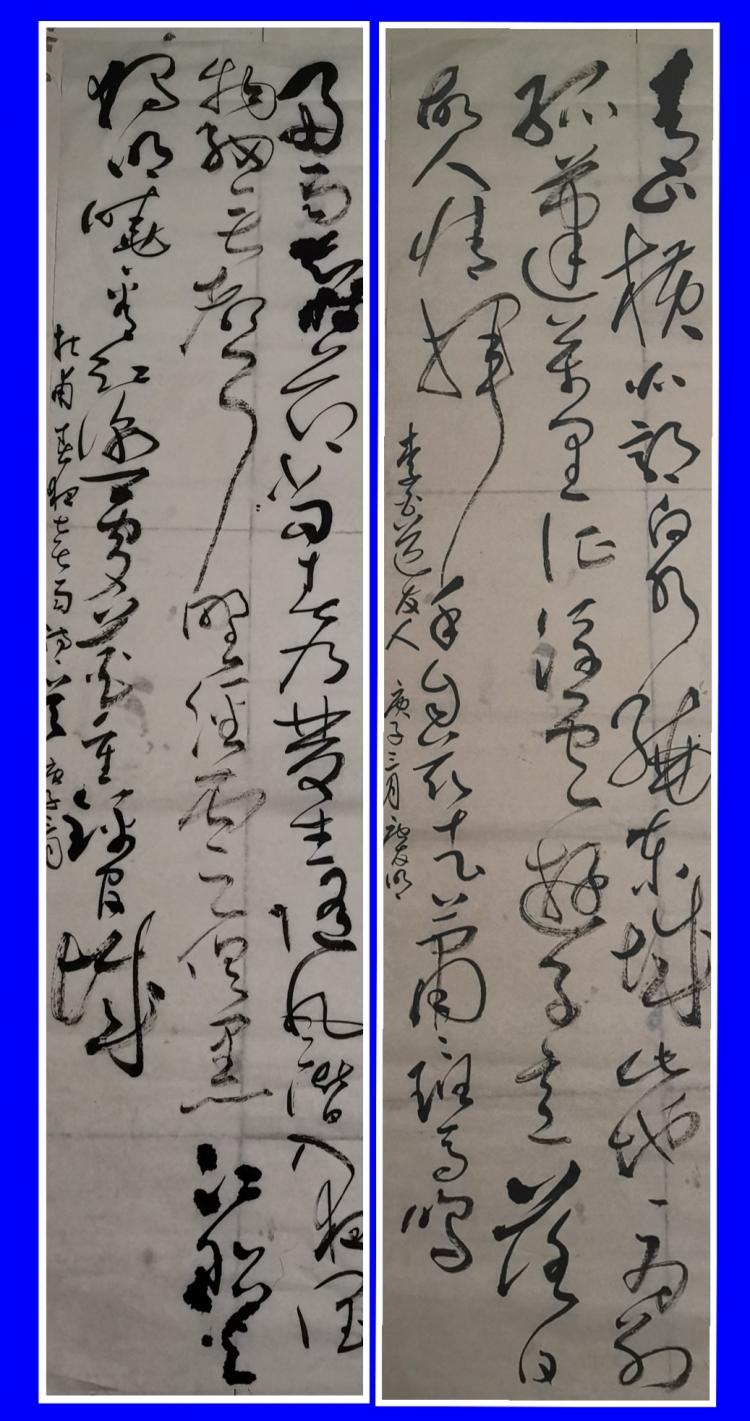 青山横北郭白水绕东城此地一为别
孤蓬万里征浮云游子意落日
故人情挥手自兹去萧萧班马鸣
李白送友人 庚子三月
好雨知时节当春乃发生随风潜入夜润
物细无声野径云俱黑江船火
独明晓看红湿处花重锦官城
杜甫春夜喜雨诗一首 庚子三月